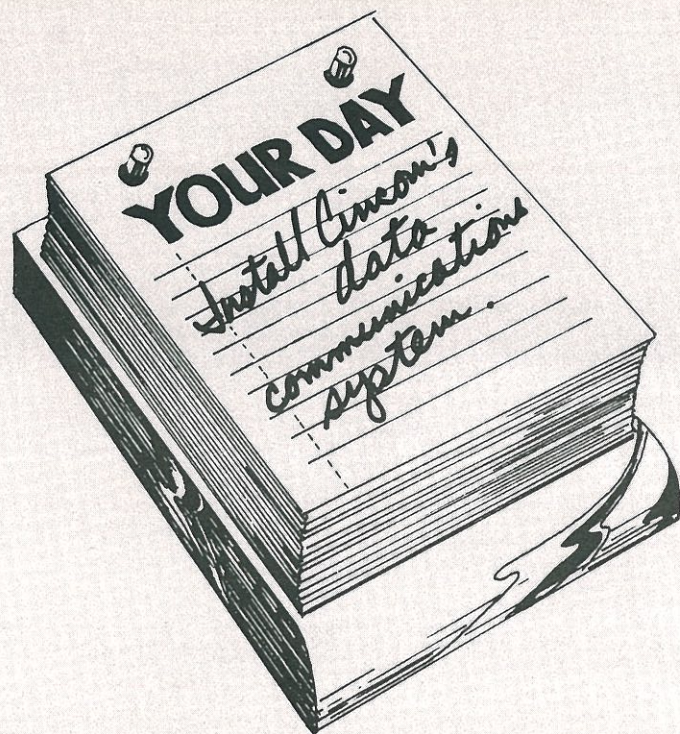 YOUR DAY
Install Cincom's
data
communications
system.